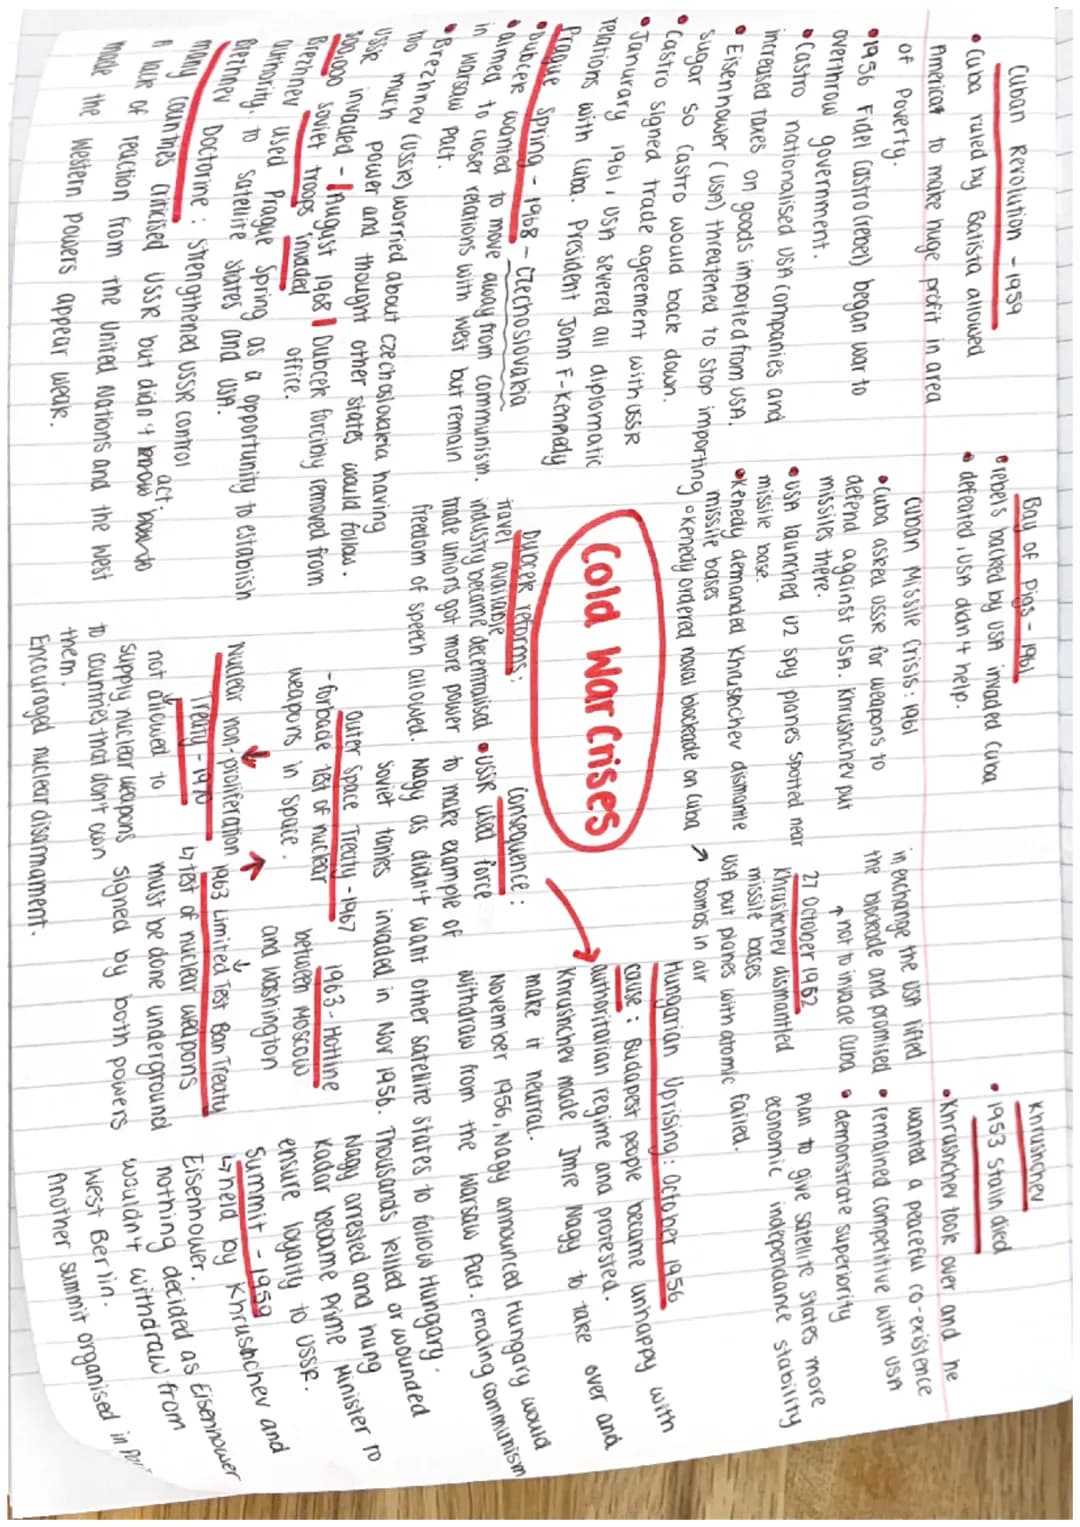 Cuban Revolution - 1959
• Cuba ruled by Batista allowed
American to make huge profit in area
of Poverty.
• 1956 Fidel Castro (rebel) began war to
overthrow government.
• Castro nationalised USA companies and
increased taxes on goods imported from USA.
• Eisennower (USA) threatened to stop importing
sugar so Castro would back down.
• Castro signed trade agreement with USSR
• Janurary 1961, USA severed all diplomatic
relations with Cuba. President John F-Kennedy
Prague Spring - 1968 - Czechoslovakia
• Dubcek wanted to move away from communism.
• aimed to closer relations with West but remain
in Warsaw Pact.
• Brezhnev (USSR) worried about Czechoslovakia having
too much power and thought other states would follow.
USSR invaded - August 1968 | Dubcek forcibly removed from
500,000 Soviet troops invaded office.
Brezhnev used Prague Spring as a opportunity to establish
authority to satellite states and USA.
Brezhnev Doctorine : Strengthened USSR control
many countries criticised USSR but didn't act.
A lack of reaction from the United Nations and the West
made the Western Powers appear weak.
Bay of Pigs - 1961
• rebels backed by USA invaded Cuba
• defeated, USA didn't help.
Cuban Missile Crisis: 1961
• Cuba asked USSR for weapons to
defend against USA. Khrushchev put
missiles there.
• USA launched U2 spy planes spotted near
missile base.
• Kenedy demanded Khrushchev dismantle
missile bases
• Kenedy ordered naval blockade on Cuba
Cold War Crises
Dubcek reforms:
travel available
industry became decentralised
trade unions got more power
freedom of speech allowed.
Consequence:
• USSR used force
to make example of
Nagy as didn't want other satellite states to follow Hungary.
Soviet tanks invaded in Nov 1956. Thousands killed or wounded
Nagy arrested and hung
Kadar became Prime Minister to
ensure loyalty to USSR.
Outer Space Treaty - 1967
- forbade test of nuclear
weapons in space.
Nuclear non-proliferation
Treaty - 1970
not allowed to
supply nuclear weapons
to countries that don't own
them.
Encouraged nuclear disarmament.
in exchange the USA lifted
the blockade and promised
not to invade Cuba
27 October 1962
Khrushchev dismantled
missile bases
USA put planes with atomic
bombs in air
Hungarian Uprising: October 1956
cause: Budapest people became unhappy with
authoritarian regime and protested.
Khrushchev made Imre Nagy to take over and
make it neutral.
November 1956, Nagy announced Hungary would
withdraw from the Warsaw Pact. ending communism
1963 - Hotline
between Moscow
and Washington
1963 Limited Test Ban Treaty
↳ test of nuclear weapons
must be done underground
signed by both powers
Khrushchev
• 1953 Stalin died
• Khrushchev took over and he
wanted a peaceful co-existence
• remained competitive with USA
• demonstrate superiority
plan to give satellite states more
economic independance stability
failed.
Summit - 1959
↳ held by Khrushchev and
Eisenhower.
nothing decided as Eisenhower
wouldn't withdraw from
West Berlin.
Another summit organised in